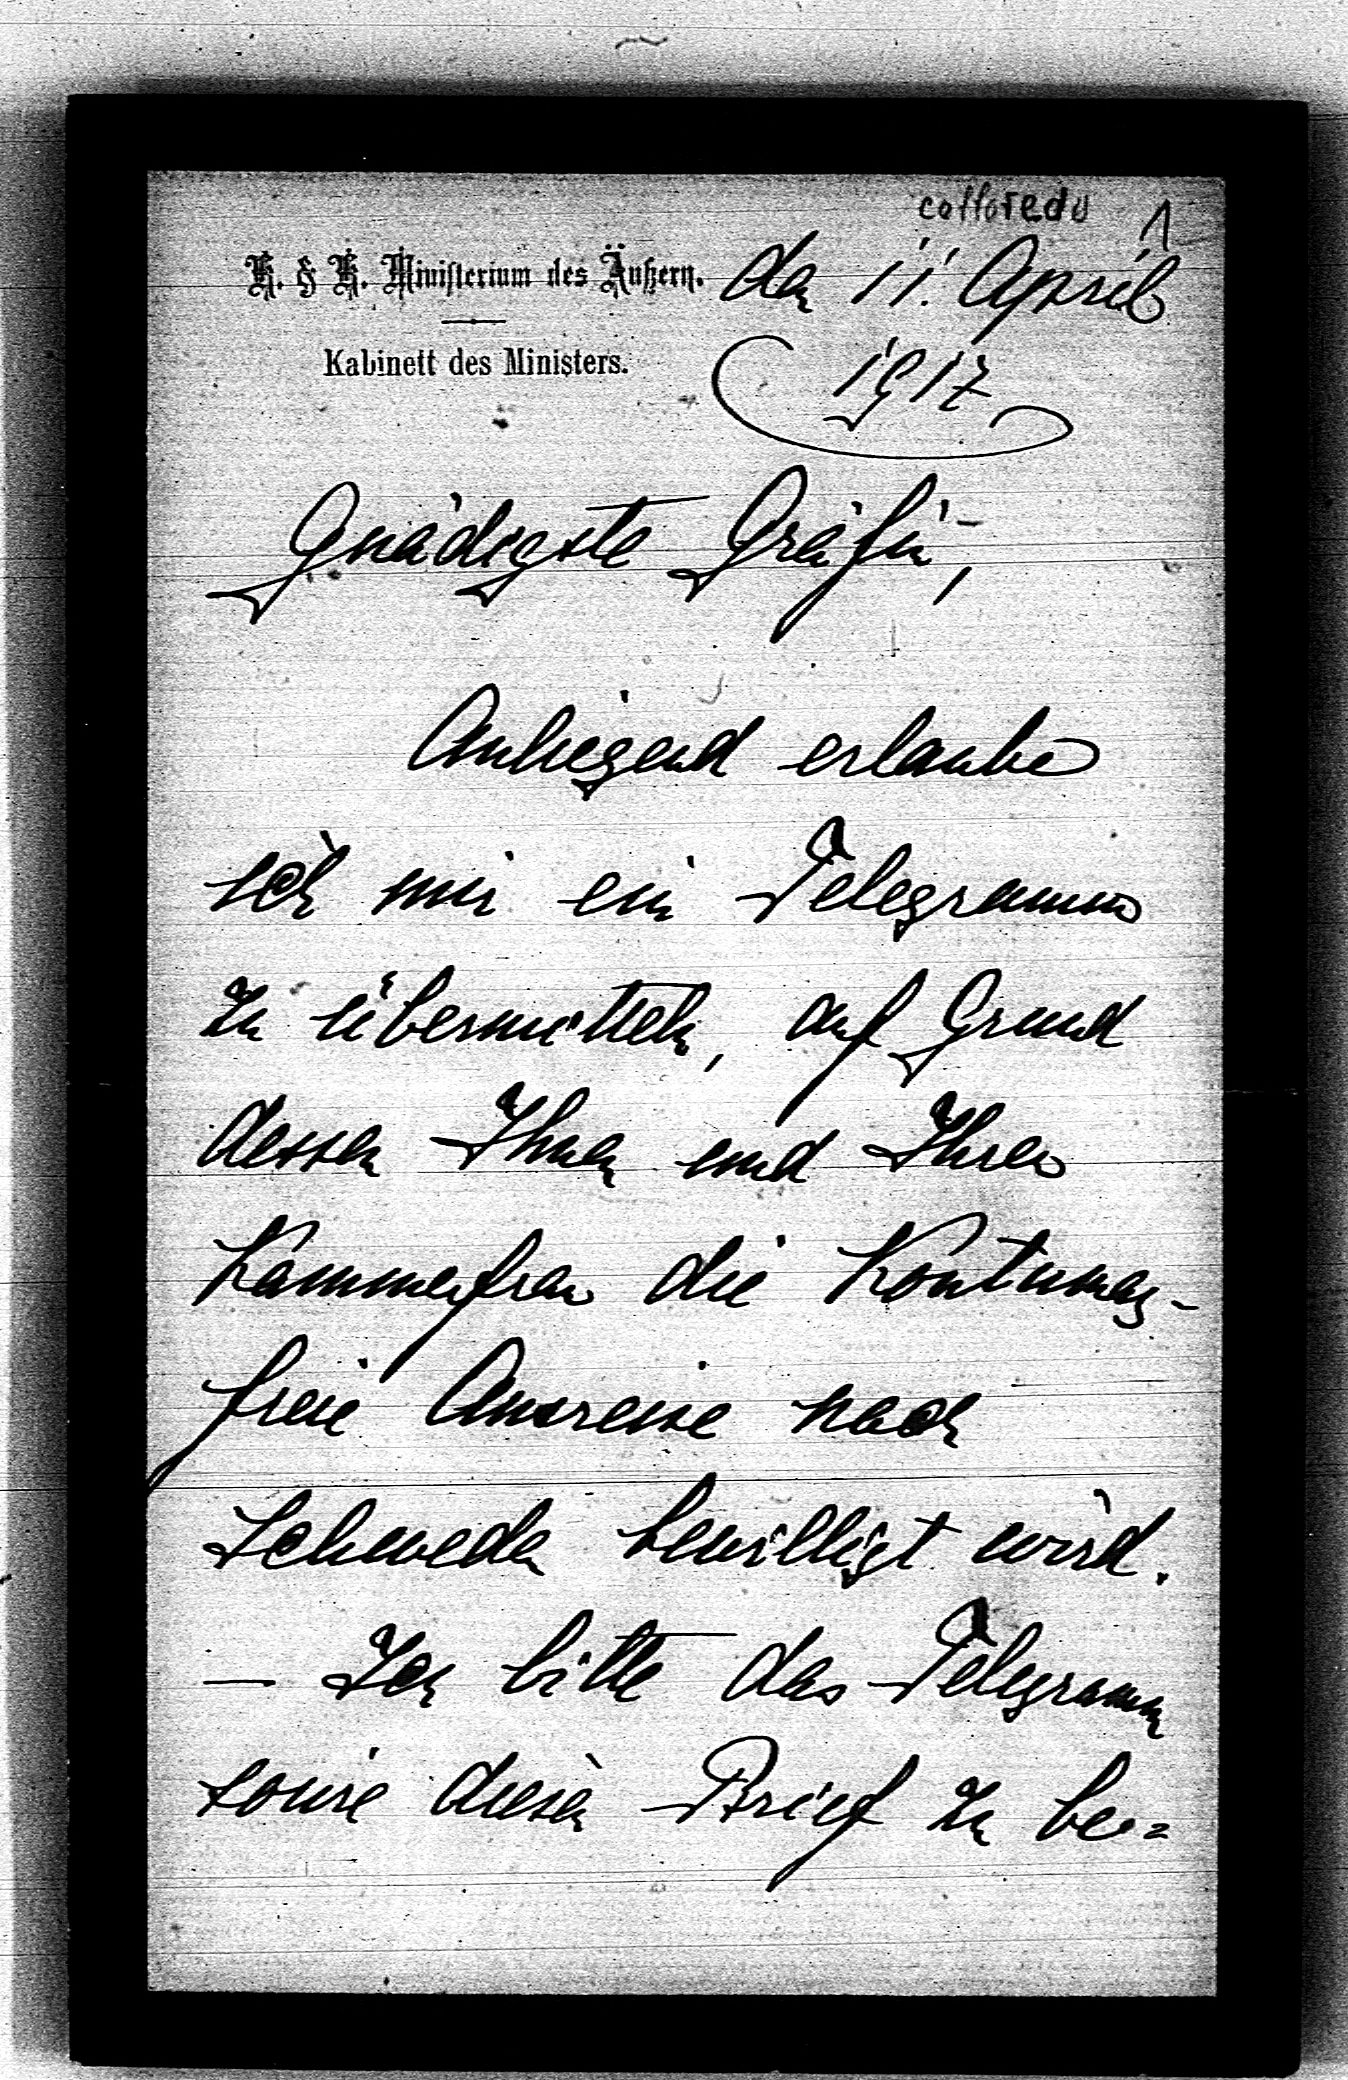 colloredo 1
K. & K. Ministerium des Äußern. den 11. April
Kabinett des Ministers. 1917
Gnädigste Gräfin,
Anliegend erlaube
ich mir ein Telegramm
zu übermitteln, auf Grund
dessen Ihnen und Ihrer
Kammerfrau die Kontumaz-
freie Ausreise nach
Schweden bewilligt wird.
— Ich bitte das Telegramm
sowie diesen Brief zu bei=